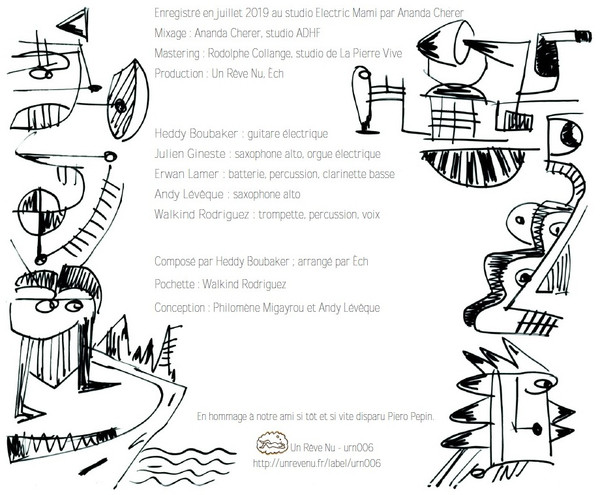 Enregistré en juillet 2019 au studio Electric Mami par Ananda Cherer
Mixage : Ananda Cherer, studio ADHF
Mastering : Rodolphe Collange, studio de La Pierre Vive
Production : Un Rêve Nu, Èch
Heddy Boubaker : guitare électrique
Julien Gineste : saxophone alto, orgue électrique
Erwan Lamer : batterie, percussion, clarinette basse
Andy Lévêque : saxophone alto
Walkind Rodriguez : trompette, percussion, voix
Composé par Heddy Boubaker ; arrangé par Èch
Pochette : Walkind Rodriguez
Conception : Philomène Migayrou et Andy Lévêque
En hommage à notre ami si tôt et si vite disparu Piero Pepin.
Un Rêve Nu - urn006
http://unrevenu.fr/label/urn006